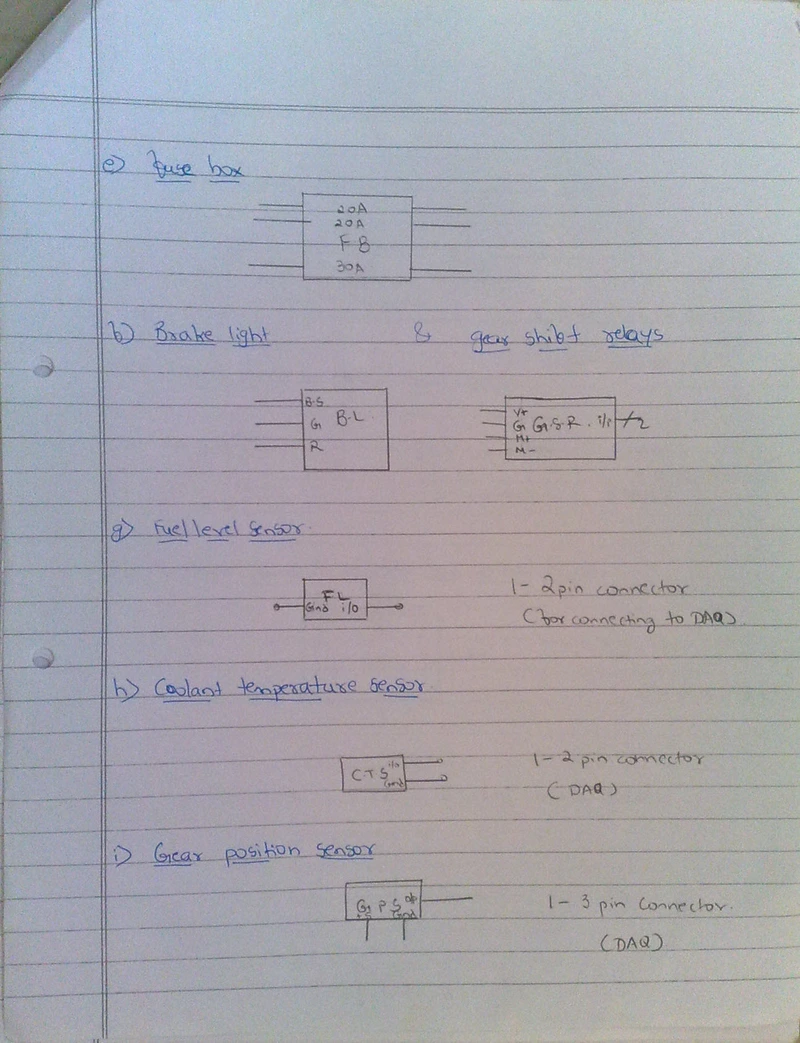 e) fuse box
20A
20A
FB
30A
f) Brake light & gear shift relays
B.S
G B.L.
R
V+
G G.S.R. i/i 2
M+
M-
g) Fuel level sensor.
FL
Gnd i/o
1- 2 pin connector
(for connecting to DAQ)
h) Coolant temperature sensor
CTS
Gnd
1- 2 pin connector
(DAQ)
i) Gear position sensor
GPS o/p
Gnd
1- 3 pin connector.
(DAQ)